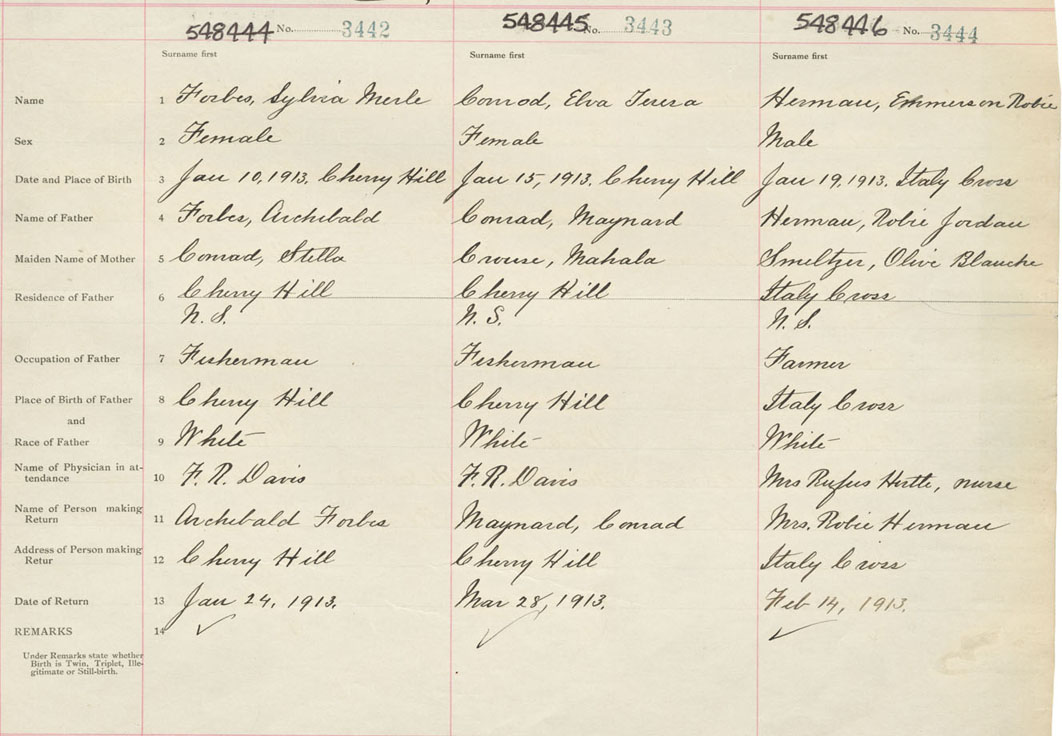 548444 No. 3442 548445 No. 3443 548446 No. 3444
Surname first Surname first Surname first
Name 1 Forbes, Sylvia Merle Conrod, Elva Teresa Herman, Emmerson Robie
Sex 2 Female Female Male
Date and Place of Birth 3 Jan 10, 1913. Cherry Hill Jan 15, 1913. Cherry Hill Jan 19, 1913. Italy Cross
Name of Father 4 Forbes, Archibald Conrad, Maynard Herman, Robie Jordan
Maiden Name of Mother 5 Conrad, Stella Crouse, Mahala Smeltzer, Olive Blanche
Residence of Father 6 Cherry Hill Cherry Hill Italy Cross
N. S. N. S. N. S.
Occupation of Father 7 Fisherman Fisherman Farmer
Place of Birth of Father 8 Cherry Hill Cherry Hill Italy Cross
and
Race of Father 9 White White White
Name of Physician in at-
tendance 10 F. R. Davis F. R. Davis Mrs Rufus Hirtle, nurse
Name of Person making
Return 11 Archibald Forbes Maynard, Conrad Mrs. Robie Herman
Address of Person making
Retur 12 Cherry Hill Cherry Hill Italy Cross
Date of Return 13 Jan 24, 1913. Mar 28, 1913. Feb 14, 1913.
REMARKS 14
Under Remarks state whether
Birth is Twin, Triplet, Ille-
gitimate or Still-birth.